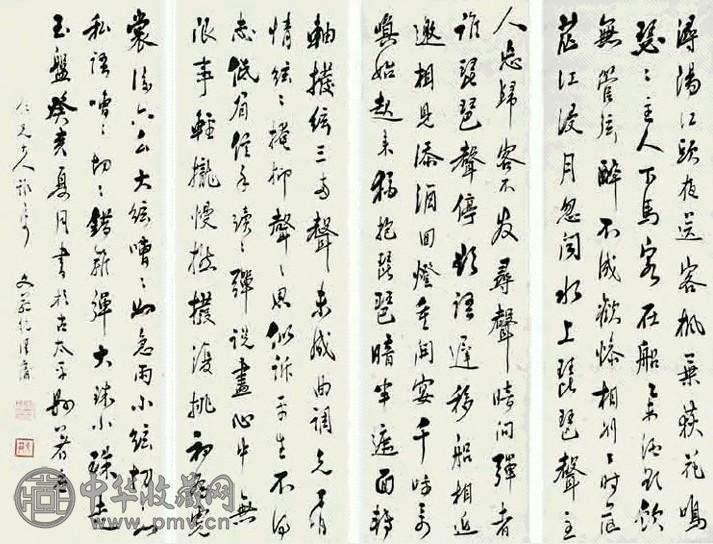 潯陽江頭夜送客楓葉荻花鳴
瑟〻主人下馬客在船舉酒欲飲
無管弦醉不成歡慘相別〻時茫
茫江浸月忽聞水上琵琶聲主
人忘歸客不发尋聲暗问彈者
誰琵琶聲停欲語遲移船相近
邀相見添酒回燈重開宴千呼萬
喚始起来猶抱琵琶暗半遮面轉
軸撥弦三兩聲未成曲調先有
情弦〻掩抑聲〻思似訴平生不得
志低眉信手續〻彈說盡心中無
限事輕攏慢撚撥復挑初為霓
裳後六幺大弦嘈〻如急雨小弦切〻如
私語嘈〻切〻錯雜彈大珠小珠
玉盤癸亥夏月書於古太平州署
仁兄大人雅
中华收藏网
www.pmv.cn